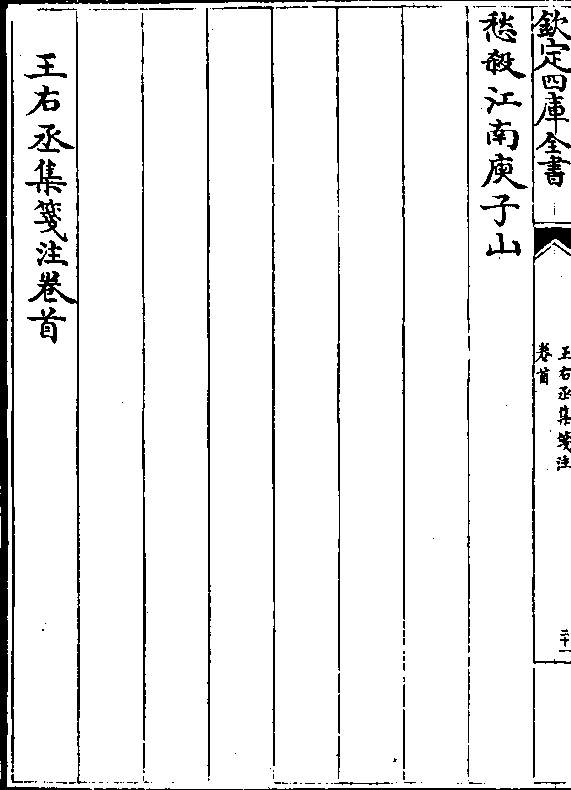 欽定四庫全書
王右丞集箋注
卷首
二十一
愁殺江南庾子山
王右丞集箋注卷首